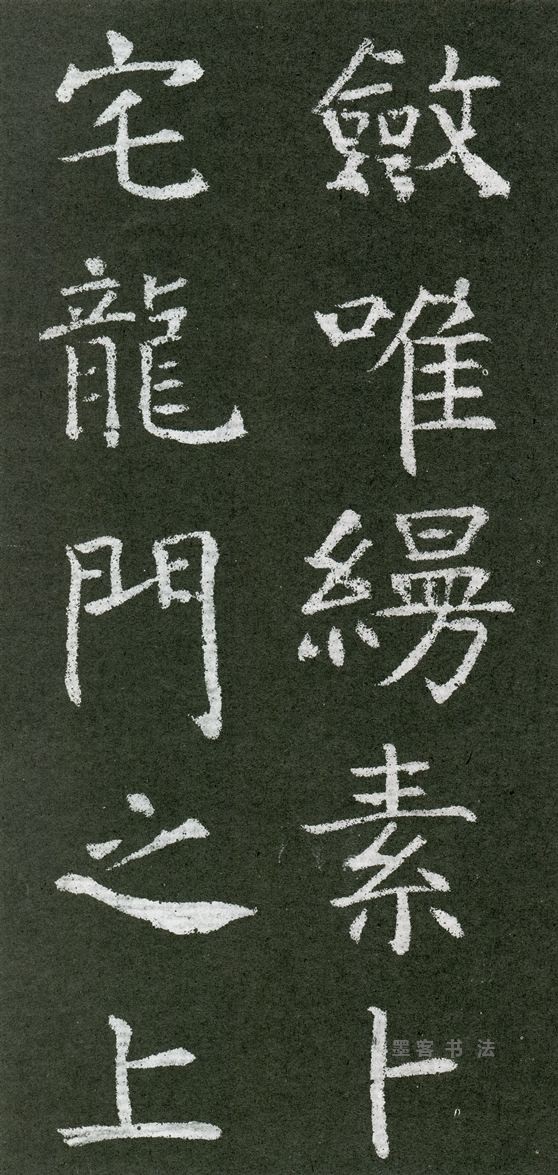 斂唯縵素卜
宅龍門之上
墨客书法